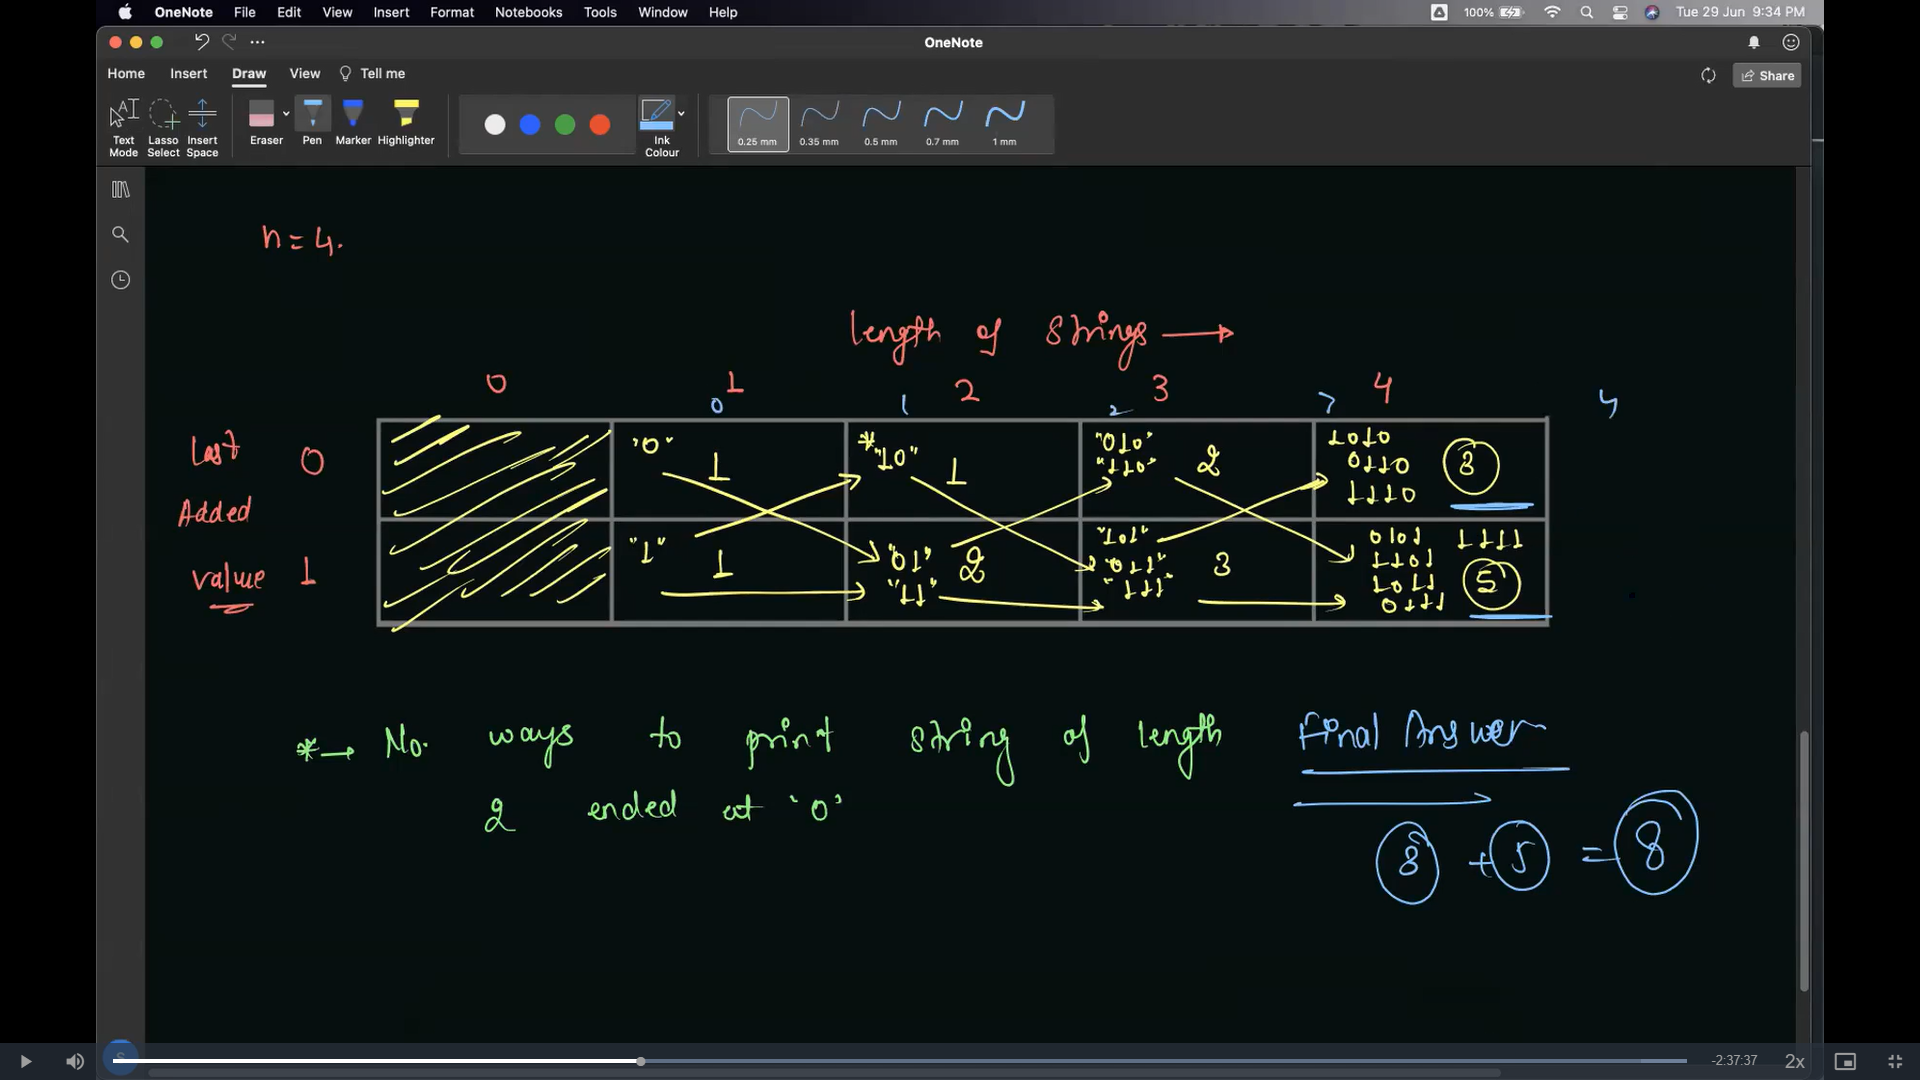 OneNote File Edit View Insert Format Notebooks Tools Window Help 100% Tue 29 Jun 9:34 PM
OneNote
Home Insert Draw View Tell me Share
Text Mode Lasso Select Insert Space Eraser Pen Marker Highlighter Ink Colour 0.25 mm 0.35 mm 0.5 mm 0.7 mm 1 mm
n=4.
length of strings →
0 1 2 3 4
0 1 2 4
Last 0 "0" 1 *"10" 1 "010" "110" 2 1010 0110 1110 3
Added
value 1 "1" 1 "01" "11" 2 "101" "011" "111" 3 0101 1101 1011 0111 1111 5
*→ No. ways to print string of length
2 ended at '0'
Final Answer
3 + 5 = 8
-2:37:37 2x